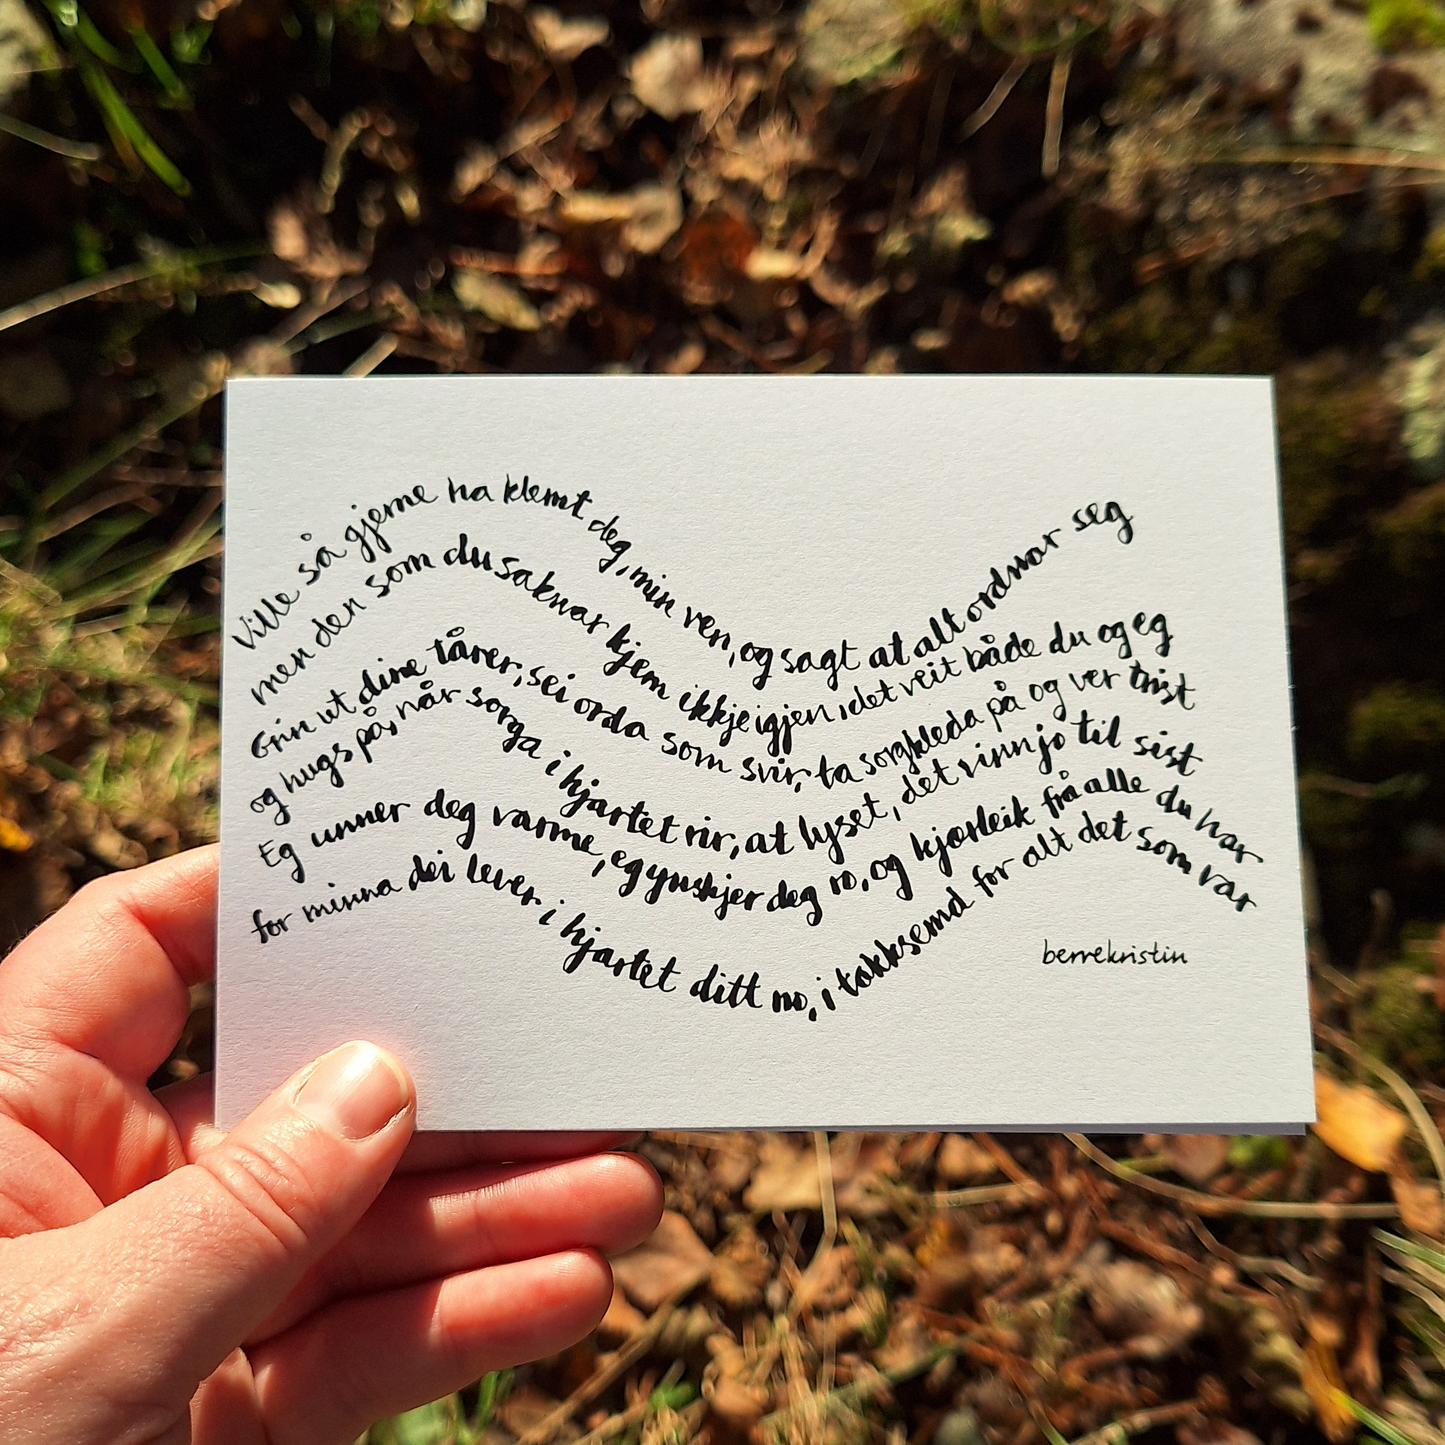 Ville så gjerne ha klemt deg, min ven, og sagt at alt ordnar seg
men den som du saknar kjem ikkje igjen, det veit både du og eg
Grin ut dine tårer, sei orda som svir, ta sorgkleda på og ver trist
og hugs på, når sorga i hjartet rir, at lyset, det vinn jo til sist
Eg unner deg varme, eg ynskjer deg ro, og kjærleik frå alle du har
for minna dei lever i hjartet ditt no, i takksemd for alt det som var
berrekristin